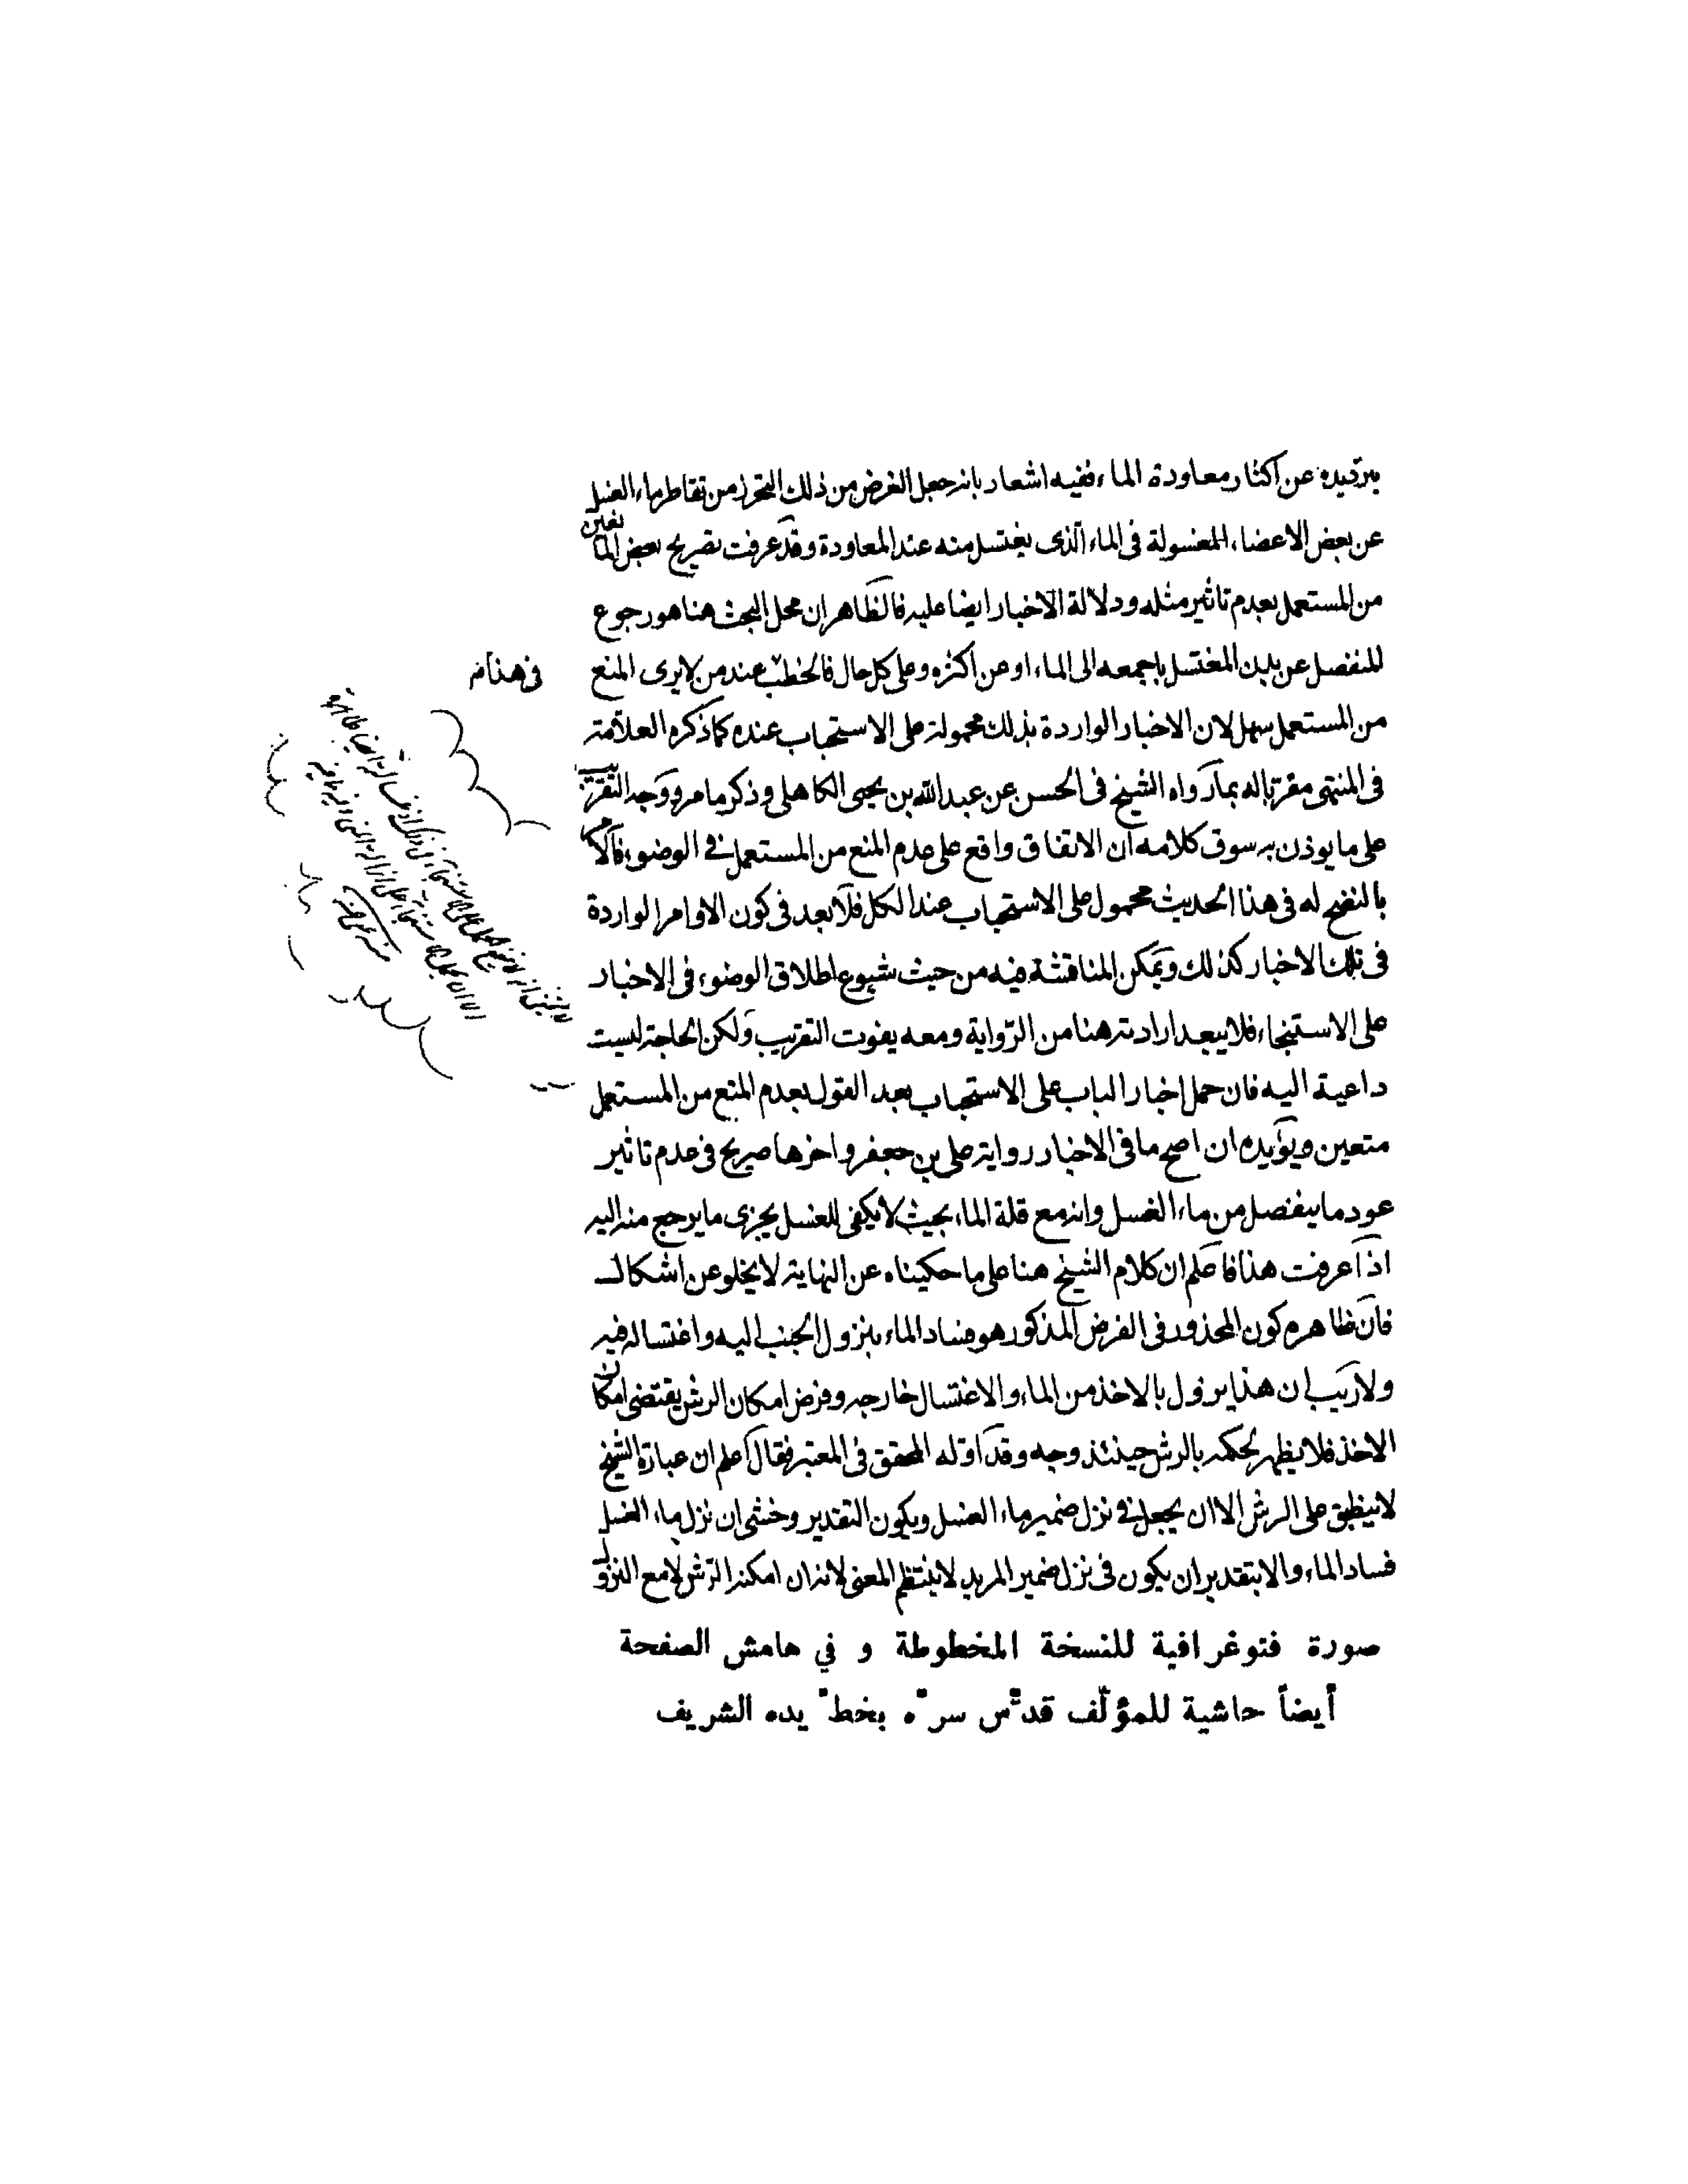 ببرديده عن اكثار معاودة الماء ففيه اشعار بانه جعل الغرض من ذلك التحرز من تقاطر ماء الغسل
عن بعض الاعضاء المغسولة فى الماء الذى يغتسل منه عند المعاودة وقد عرفت تصريح بعض المانعين
من المستعمل بعدم تاثير مثله ودلالة الاخبار ايضا عليه فالظاهر ان محل البحث هنا هو رجوع
المنفصل عن بدن المغتسل باجمعه الى الماء او عن اكثره وعلى كل حال فالخطب عند من لا يرى المنع
فى هذا
من المستعمل سهل لان الاخبار الواردة بذلك محمولة على الاستحباب عنده كما ذكره العلامة
فى المنتهى مقربا له بما رواه الشيخ فى الحسن عن عبد الله بن يحيى الكاهلى وذكر ما مر ووجه التقريب
على ما يوذن به سوق كلامه ان الاتفاق واقع على عدم المنع من المستعمل فى الوضوء فالامر
بالنضح له فى هذا الحديث محمول على الاستحباب عند الكل فلا بعد فى كون الاوامر الواردة
فى تلك الاخبار كذلك ويمكن المناقشة فيه من حيث شيوع اطلاق الوضوء فى الاخبار
على الاستنجاء فلا يبعد ارادته هنا من الرواية ومعه يفوت التقريب ولكن الحاجة ليست
داعية اليه فان حمل اخبار الباب على الاستحباب بعد القول بعدم المنع من المستعمل
متعين ويؤيده ان اصح ما فى الاخبار رواية على بن جعفر واخرها صريح فى عدم تاثير
عود ما ينفصل من ماء الغسل وانه مع قلة الماء بحيث لا يكفى للغسل يجزى ما يرجع منه اليه
اذا عرفت هذا فاعلم ان كلام الشيخ هنا على ما حكيناه عن النهاية لا يخلو عن اشكال
فان ظاهره كون المحذور فى الفرض المذكور هو فساد الماء بنزول الجنب اليه واغتساله فيه
ولا ريب ان هذا يزول بالاخذ من الماء والاغتسال خارجه وفرض امكان الرش يقتضى امكان
الاخذ فلا يظهر لحكمه بالرش حينئذ وجه وقد اوله المحقق فى المعتبر فقال اعلم ان عبارة الشيخ
لا ينطبق على الرش الا ان يجعل فى نزل ضمير ماء الغسل ويكون التقدير وخشى ان نزل ماء الغسل
فساد الماء والا بتقدير ان يكون فى نزل ضمير المريد لا ينتظم المعنى لانه ان امكنه الرش لا مع النزول
صورة فتوغرافية للنسخة المخطوطة و في هامش الصفحة
أيضاً حاشية للمؤلّف قدّس سرّه بخطّ يده الشريف